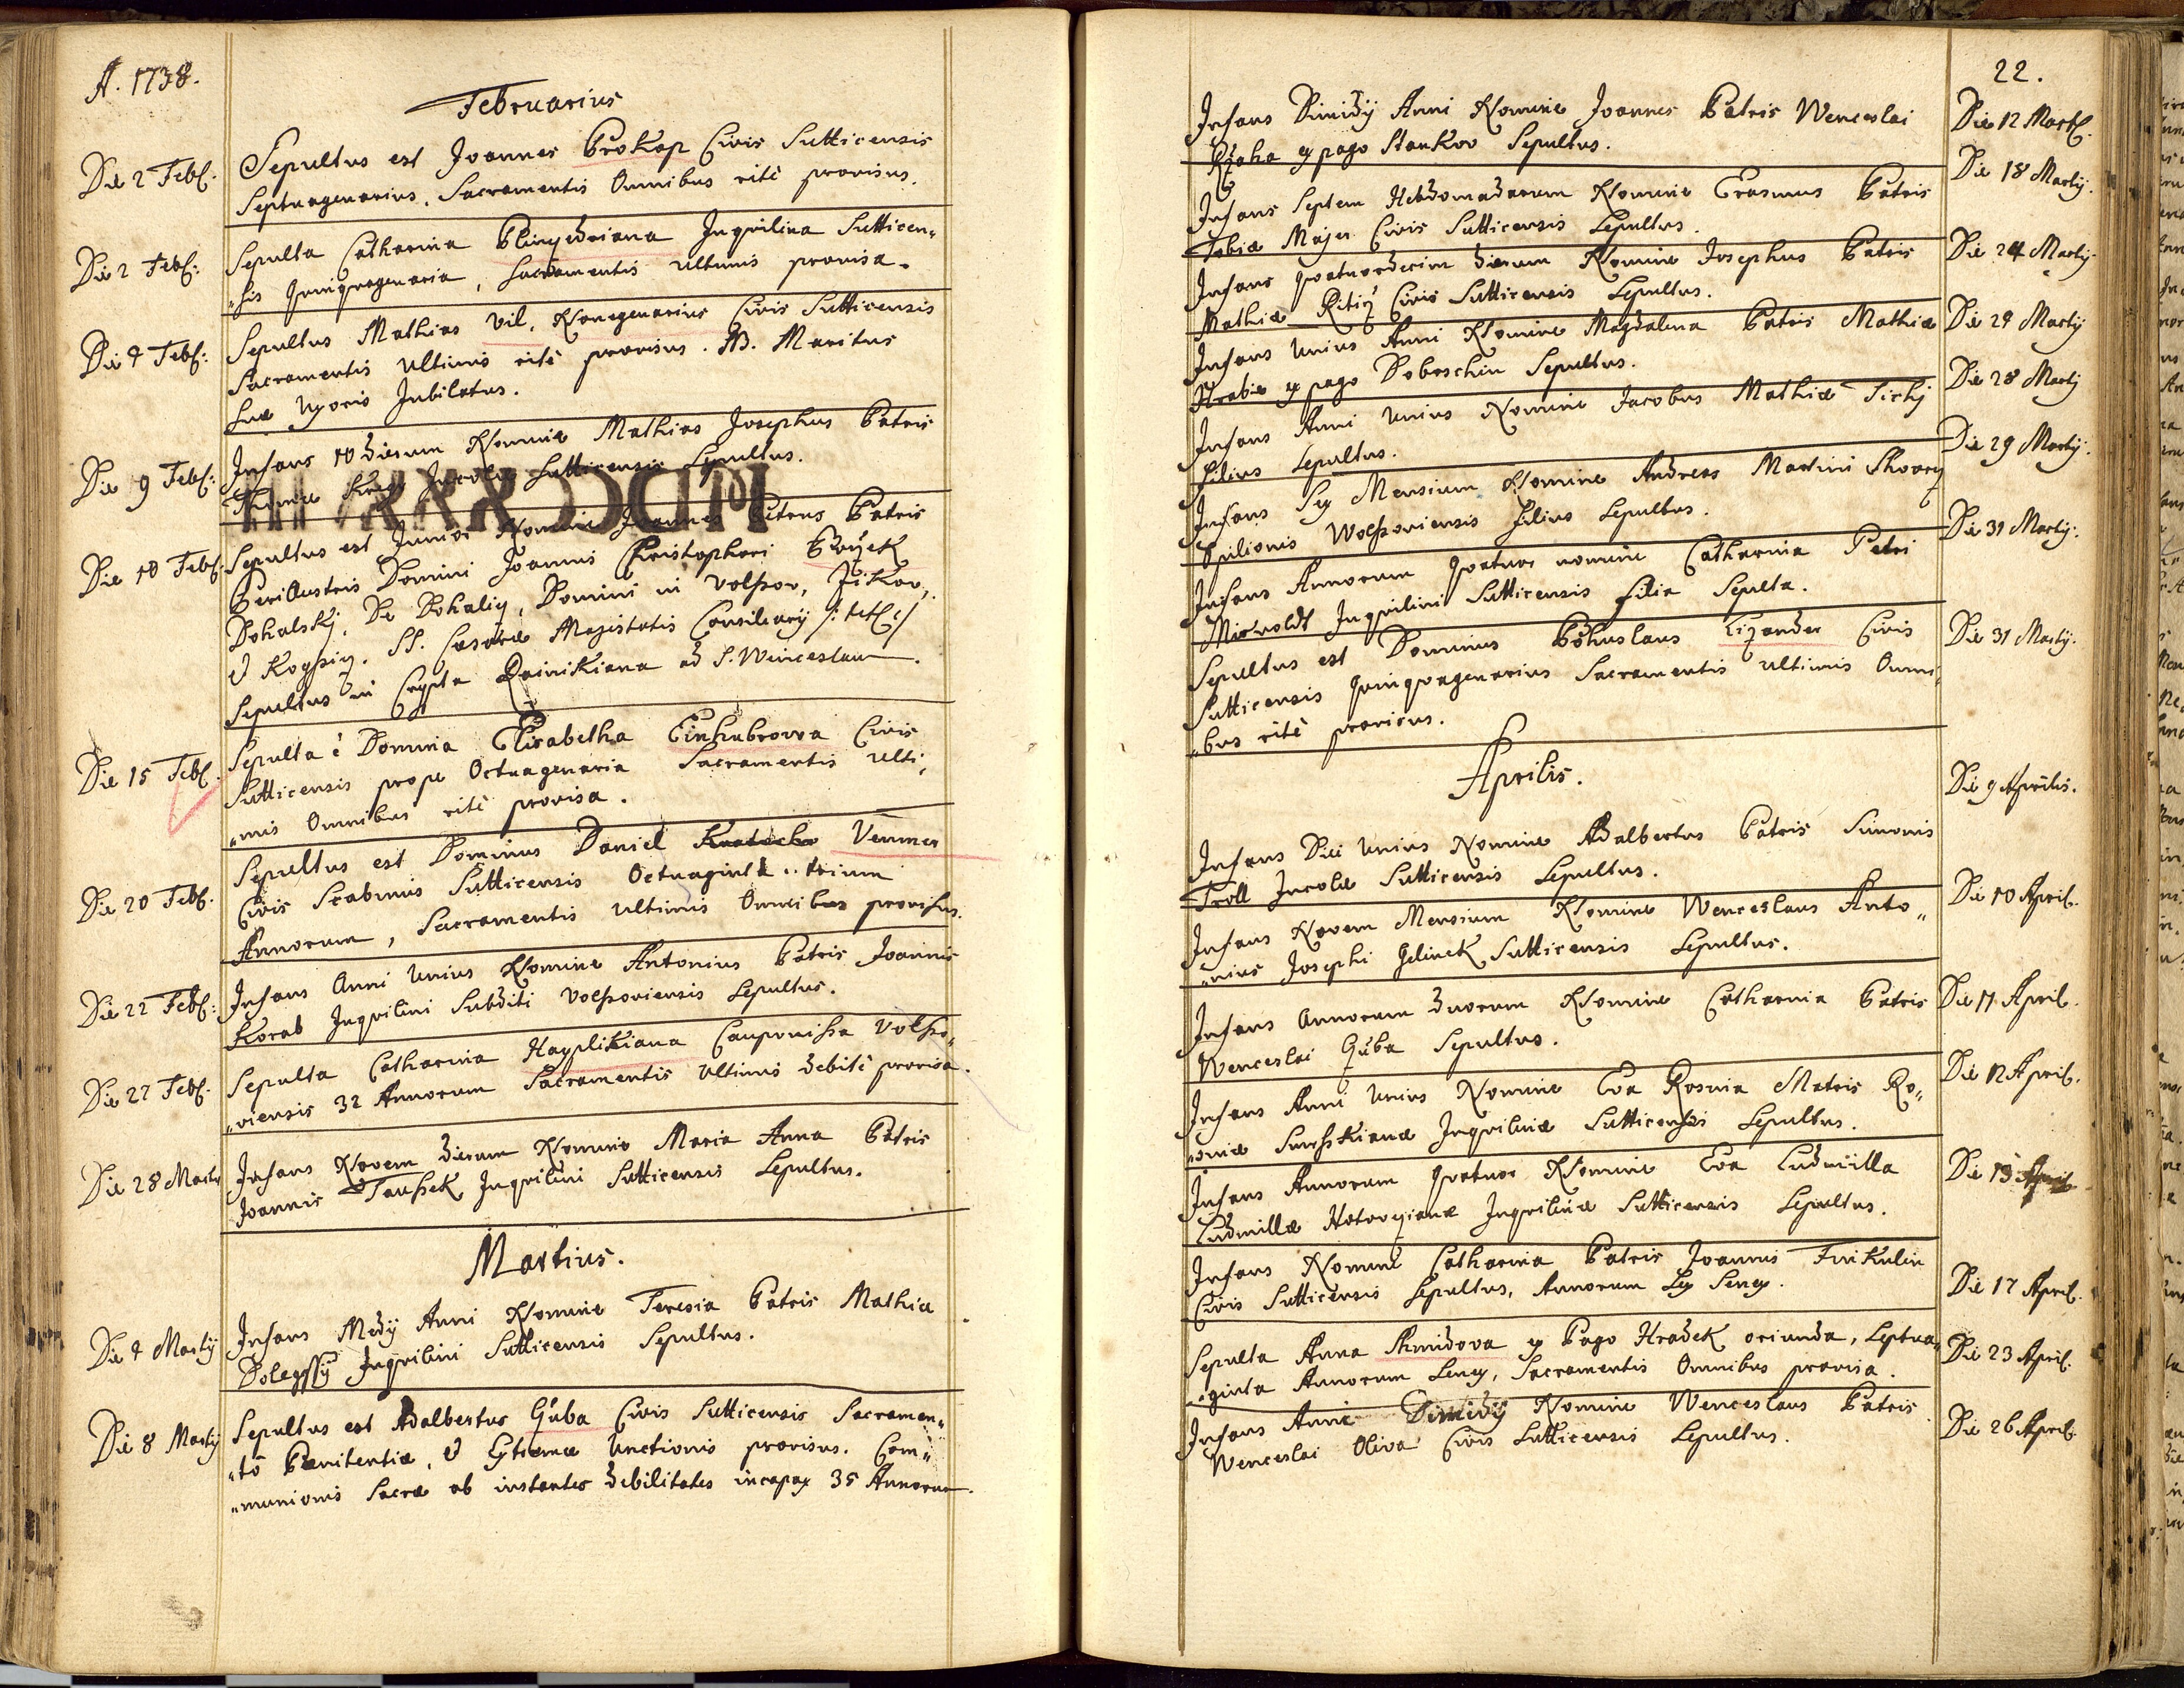 A. 1738.
Februarius
Die 2 Feb:
Sepultus est Joannes Prokop Civis Sutticensis
Septuagenarius, Sacramentis Omnibus ritè provisus.
Die 2 Feb:
Sepulta Catharina Inqvilina Sutticen„
„sis Qvinqvagenaria, Sacramentis ultimis provisa.
Die 7 Feb:
Sepultus Mathias Vil, Nonagenarius Civis Sutticensis
Sacramentis Ultimis ritè provisus. NB. Maritus
suae Uxoris Jubilatus.
Die 9 Feb:
Infans 10 dierum Nomine Mathias Josephus Patris
Thomae Incolae Sutticensis Sepultus.
MDCCXXXVIII
Die 10 Feb:
Sepultus est Junior Nomine Joannes Petrus Patris
Perillustris Domini Joannis Christophori
Dohalsky, De Dohaliz, Domini in Volssov, Zikov,
S. Caesareae Magistatis Consiliarij /: tit :/
Sepultus in Crypta ad S. Wenceslaum.
Die 15 Feb:
Sepulta è Domina Elisabetha Civis
Sutticensis prope Octuagenaria Sacramentis ulti„
„mis Omnibus ritè provisa.
Die 20 Feb:
Sepultus est Dominus Daniel Venmer
Civis Scabinus Sutticensis Octuaginta trium
Annorum, Sacramentis ultimis Omnibus provisus.
Die 22 Feb:
Infans Anni Unius Nomine Antonius Patris Joannis
Korab Inqvilini Subditi Volssoviensis Sepultus.
Die 27 Feb:
Sepulta Catharina Hayplikiana Cauponissa Volsso„
„viensis 32 Annorum Sacramentis Ultimis debitè provisa.
Die 28 Marti
Infans Novem dierum Nomine Maria Anna Patris
Joannis Taussek Inqvilini Sutticensis Sepultus.
Martius.
Die 7 Martij
Infans Medij Anni Nomine Teresia Patris Mathiae
Dolegssy Inqvilini Sutticensis Sepultus.
Die 8 Martij
Sepultus est Adalbertus Guba Civis Sutticensis Sacramen„
„tô Paenitentiae, & Extremae Unctionis provisus. Com„
„munionis Sacrae ob instantes debilitates incapax 35 Annorum.
22.
Infans Dimidij Anni Nomine Joannes Patris Wenceslai
Rzaha ex pago Stankov Sepultus.
Die 12 Marti.
Infans Septem Hebdomadarum Nomine Erasmus Patris
Tobiae Majer Civis Sutticensis Sepultus.
Die 18 Martij.
Infans qvatuordecim dierum Nomine Josephus Patris
Mathiae Civis Sutticensis Sepultus.
Die 24 Martij.
Infans Unius Anni Nomine Magdalena Patris Mathiae
Hrabie ex pago Doboschin Sepultus.
Die 27 Martij
Infans Anni Unius Nomine Jacobus Mathiae Tichj
Filius Sepultus.
Die 28 Martij
Infans Sex Mensium Nomine Andreas Martini Skvarz
Opilionis Wolssoviensis Filius Sepultus.
Die 29 Martij.
Infans Annorum qvatuor nomine Catharina Petri
Inqvilini Sutticensis filia Sepulta.
Die 31 Martij.
Sepultus est Dominus Bohuslaus Lizander Civis
Sutticensis qvinqvagenarius Sacramentis ultimis Omni„
„bus ritè provisus.
Die 31 Martij.
Aprilis.
Infans Diei Unius Nomine Adalbertus Patris Simonis
Troll Incolae Sutticensis Sepultus.
Die 9 Aprilis.
Infans Novem Mensium Nomine Wenceslaus Anto„
„nius Josephi Gelinek Sutticensis Sepultus.
Die 10 April.
Infans Annorum duorum Nomine Catharina Patris
Wenceslai Guba Sepultus.
Die 11 April.
Infans Anni Unius Nomine Eva Rosina Matris Ro„
„sinae Inqvilinae Sutticensis Sepultus.
Die 12 April.
Infans Annorum qvatuor Nomine Eva Ludmilla
Ludmillae Inqvilinae Sutticensis Sepultus.
Die 13 April
Infans Nomine Catharina Patris Joannis Finkulin
Civis Sutticensis Sepultus, Annorum Sex Senex.
Die 17 April.
Sepulta Anna Smidova ex Pago Hradek oriunda, Septua„
„ginta Annorum Senex, Sacramentis Omnibus provisa.
Die 23 April.
Infans Anni Dimidij Nomine Wenceslaus Patris
Wenceslai Oliva Civis Sutticensis Sepultus.
Die 26 April.